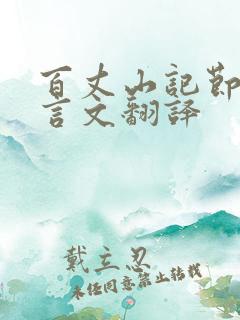 百丈山记节
言文翻译
戴立忍
未经同意禁止转载